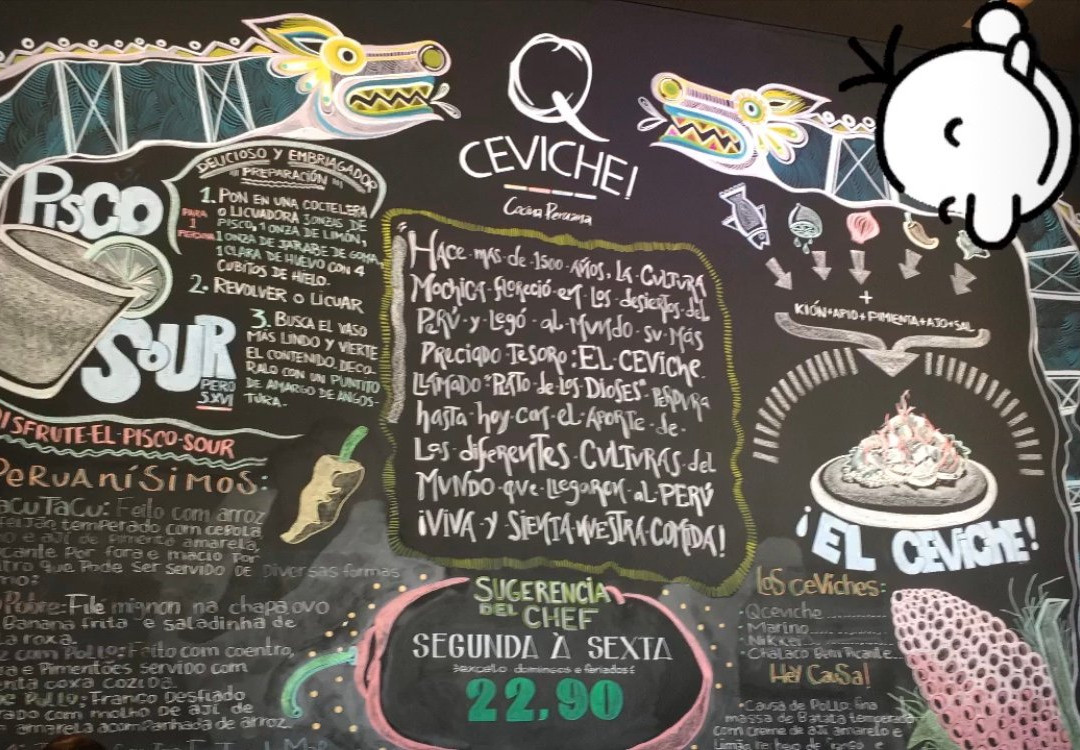 Q
CEVICHE!
Cocina Peruana
PISCO
SOUR
PERÚ
S.XVI
DELICIOSO Y EMBRIAGADOR
PREPARACIÓN
PARA
1
PERSONA
1. PON EN UNA COCTELERA
O LICUADORA 3 ONZAS DE
PISCO, 1 ONZA DE LIMÓN,
1 ONZA DE JARABE DE GOMA,
1 CLARA DE HUEVO CON 4
CUBITOS DE HIELO.
2. REVOLVER O LICUAR
3. BUSCA EL VASO
MÁS LINDO Y VIERTE
EL CONTENIDO. DECO-
RALO CON UN PUNTITO
DE AMARGO DE ANGOS-
TURA.
ISFRUTE EL PISCO SOUR
PERUANÍSIMOS:
ACU TACU: Feito com arroz
Feijão temperado com cebola,
o e ají de Pimenta amarela,
icante Por fora e macio Por
ntro que Pode ser servido de diversas formas
mo:
Pobre: Filé mignon na chapa, ovo
Banana frita e saladinha de
La roxa.
z com Pollo: Feito com coentro,
a e Pimentões servido com
nta coxa cozida.
Pollo: Frango Desfiado
rado com molho de ají de
amarela acompanhada de arroz.
HACE más de 1500 AÑOS, LA CULTURA
MOCHICA floreció en los desiertos del
PERÚ y legó al MUNDO su MÁS
PRECIADO TESORO: EL CEVICHE.
LLAMADO "PLATO de los DIOSES" PERDURA
hasta hoy con el APORTE de
Las diferentes CULTURAS del
MUNDO que llegaron al PERÚ
¡VIVA Y SIENTA NUESTRA COMIDA!
SUGERENCIA
DEL CHEF
SEGUNDA À SEXTA
exceto domingos e feriados
22,90
+
KIÓN+APIO+PIMIENTA+AJO+SAL
¡EL CEVICHE!
Los ceviches:
• Qceviche
• Marino
• Nikkei
• Chalaco Bem Picante
Hey Causa!
• Causa de Pollo: fina
massa de Batata temperada
com creme de ají amarelo e